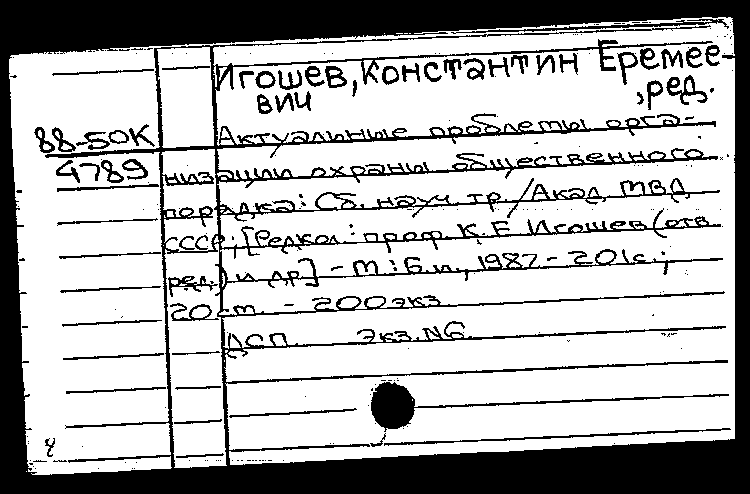 Игошев, Константин Еремее-
вич ,ред.
88-50К Актуальные проблемы орга-
4789 низации охраны общественного
порядка: Сб. науч. тр. / Акад. МВД
СССР; [Редкол.: проф. К. Е. Игошев (отв.
ред.) и др.] - М.: Б.и., 1987. - 201с.;
20см. - 200экз.
ДСП. Экз. №6.